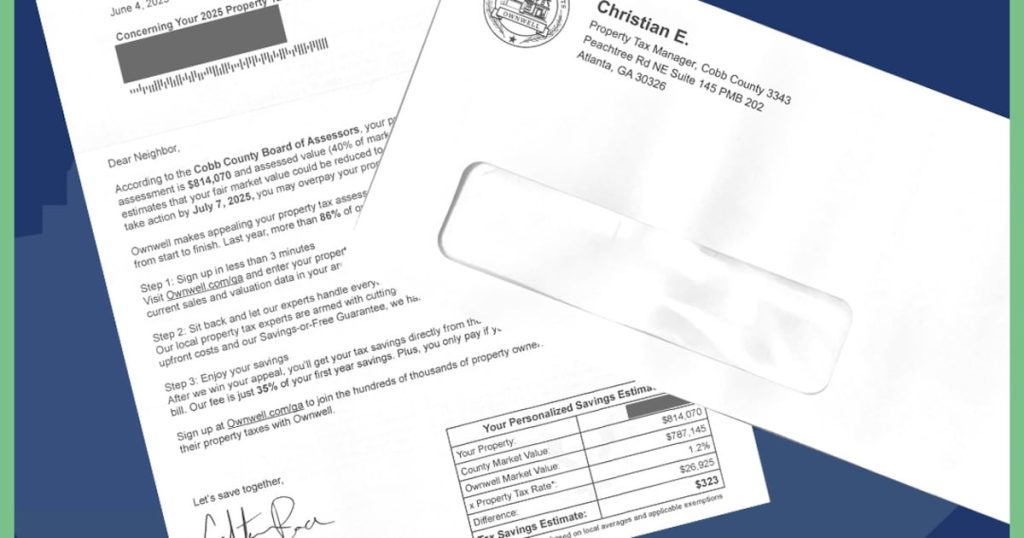 June 4, 2025
Concerning Your 2025 Property
Dear Neighbor,
According to the Cobb County Board of Assessors, your
assessment is $814,070 and assessed value (40% of
estimates that your fair market value could be reduced to
take action by July 7, 2025, you may overpay your
Ownwell makes appealing your property tax
from start to finish. Last year, more than 86% of
Step 1: Sign up in less than 3 minutes
Visit Ownwell.com/ga and enter your
current sales and valuation data in your
Step 2: Sit back and let our experts handle
Our local property tax experts are armed with
upfront costs and our Savings-or-Free Guarantee, we
Step 3: Enjoy your savings
After we win your appeal, you'll get your tax savings directly from the
bill. Our fee is just 35% of your first year savings. Plus, you only pay if
Sign up at Ownwell.com/ga to join the hundreds of thousands of property
their property taxes with Ownwell.
Let's save together,
Your Personalized Savings
Your Property:
County Market Value: $814,070
Ownwell Market Value: $787,145
x Property Tax Rate*: 1.2%
Difference: $26,925
Tax Savings Estimate: $323
on local averages and applicable exemptions
OWNWELL
Christian E.
Property Tax Manager, Cobb County 3343
Peachtree Rd NE Suite 145 PMB 202
Atlanta, GA 30326